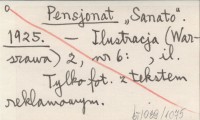 Pensjonat „Sanato".
1925. — Ilustracja (War-
szawa) 2, nr 6: , il.
Tylko fot. z tekstem
reklamowym.